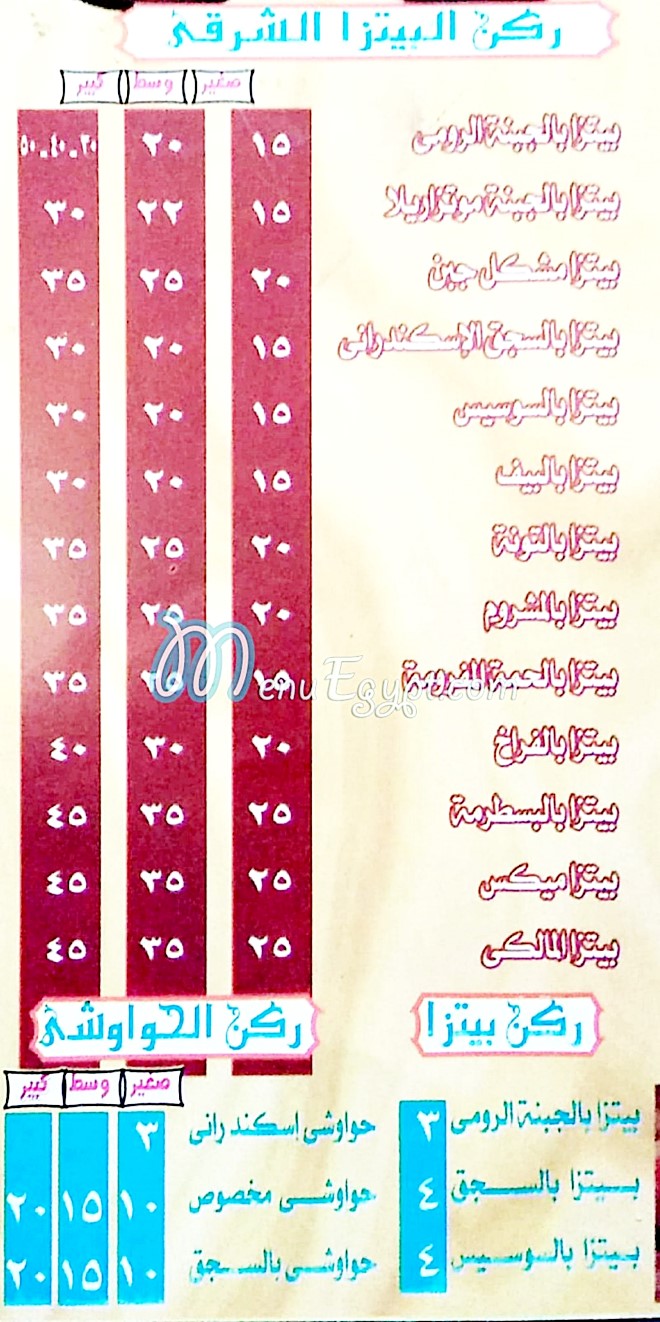 ركن البيتزا الشرقى
صغير وسط كبير
بيتزا بالجبنة الرومى ١٥ ٢٠ ٣٠-٤٠-٥٠
بيتزا بالجبنة موتزاريلا ١٥ ٢٢ ٣٠
بيتزا مشكل جبن ٢٠ ٢٥ ٣٥
بيتزا بالسجق الإسكندرانى ١٥ ٢٠ ٣٠
بيتزا بالسوسيس ١٥ ٢٠ ٣٠
بيتزا بالبيف ١٥ ٢٠ ٣٠
بيتزا بالتونة ٢٠ ٢٥ ٣٥
بيتزا بالشروم ٢٠ ٢٥ ٣٥
بيتزا بالحبة ٣٥
MenuEgypt.com
بيتزا بالفراخ ٢٠ ٣٠ ٤٠
بيتزا بالبسطرمة ٢٥ ٣٥ ٤٥
بيتزا ميكس ٢٥ ٣٥ ٤٥
بيتزا المالكى ٢٥ ٣٥ ٤٥
ركن بيتزا
بيتزا بالجبنة الرومى ٣
بيتزا بالسجق ٤
بيتزا بالسوسيس ٤
ركن الحواوشى
صغير وسط كبير
حواوشى إسكندرانى ٣
حواوشى مخصوص ١٠ ١٥ ٢٠
حواوشى بالسجق ١٠ ١٥ ٢٠